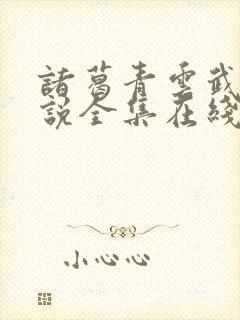 諸葛青雲武
說全集在綫
小心心